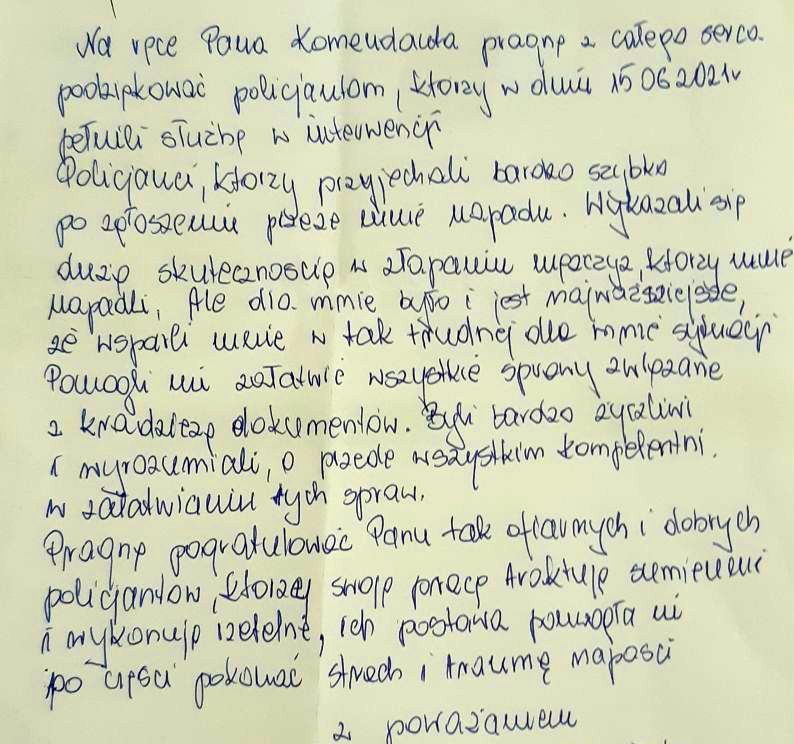 Na ręce Pana Komendanta pragnę z całego serca
podziękować policjantom, którzy w dniu 15 06 2021r
pełnili służbę w interwencji
Policjanci, którzy przyjechali bardzo szybko
po zgłoszeniu przeze mnie napadu. Wykazali się
dużą skutecznością w złapaniu mężczyz, którzy mnie
napadli, Ale dla mnie było i jest najważniejsze,
że wsparli mnie w tak trudnej dla mnie sytuacji
Pomogli mi załatwić wszystkie sprawy związane
z kradzieżą dokumentów. Byli bardzo życzliwi
i wyrozumiali, a przede wszystkim kompetentni.
w załatwianiu tych spraw.
Pragnę pogratulować Panu tak ofiarnych i dobrych
policjantów, którzy swoją pracę traktują sumiennie
i wykonują rzetelnie, ich postawa pomogła mi
po części pokonać strach i traumę napaści
z poważaniem